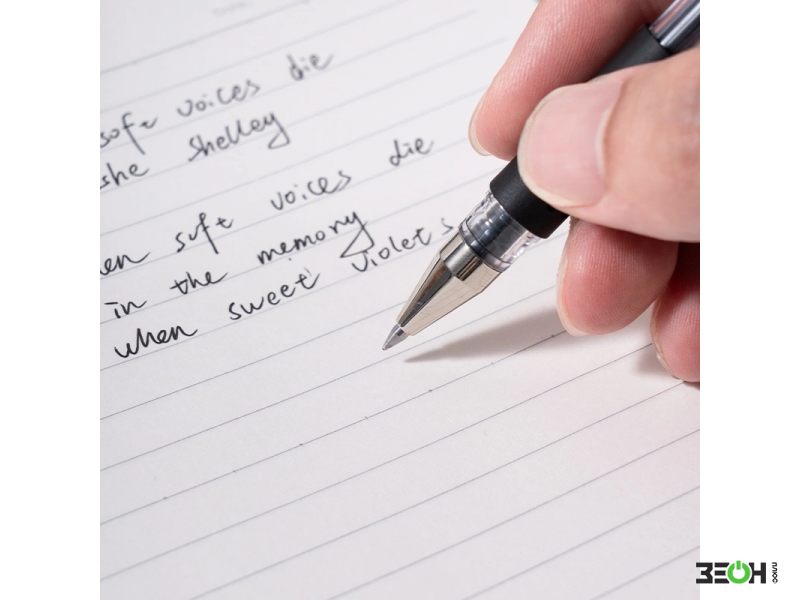 soft voices die
she shelley
en soft voices die
in the memory
when sweet violets
ЗЕОН